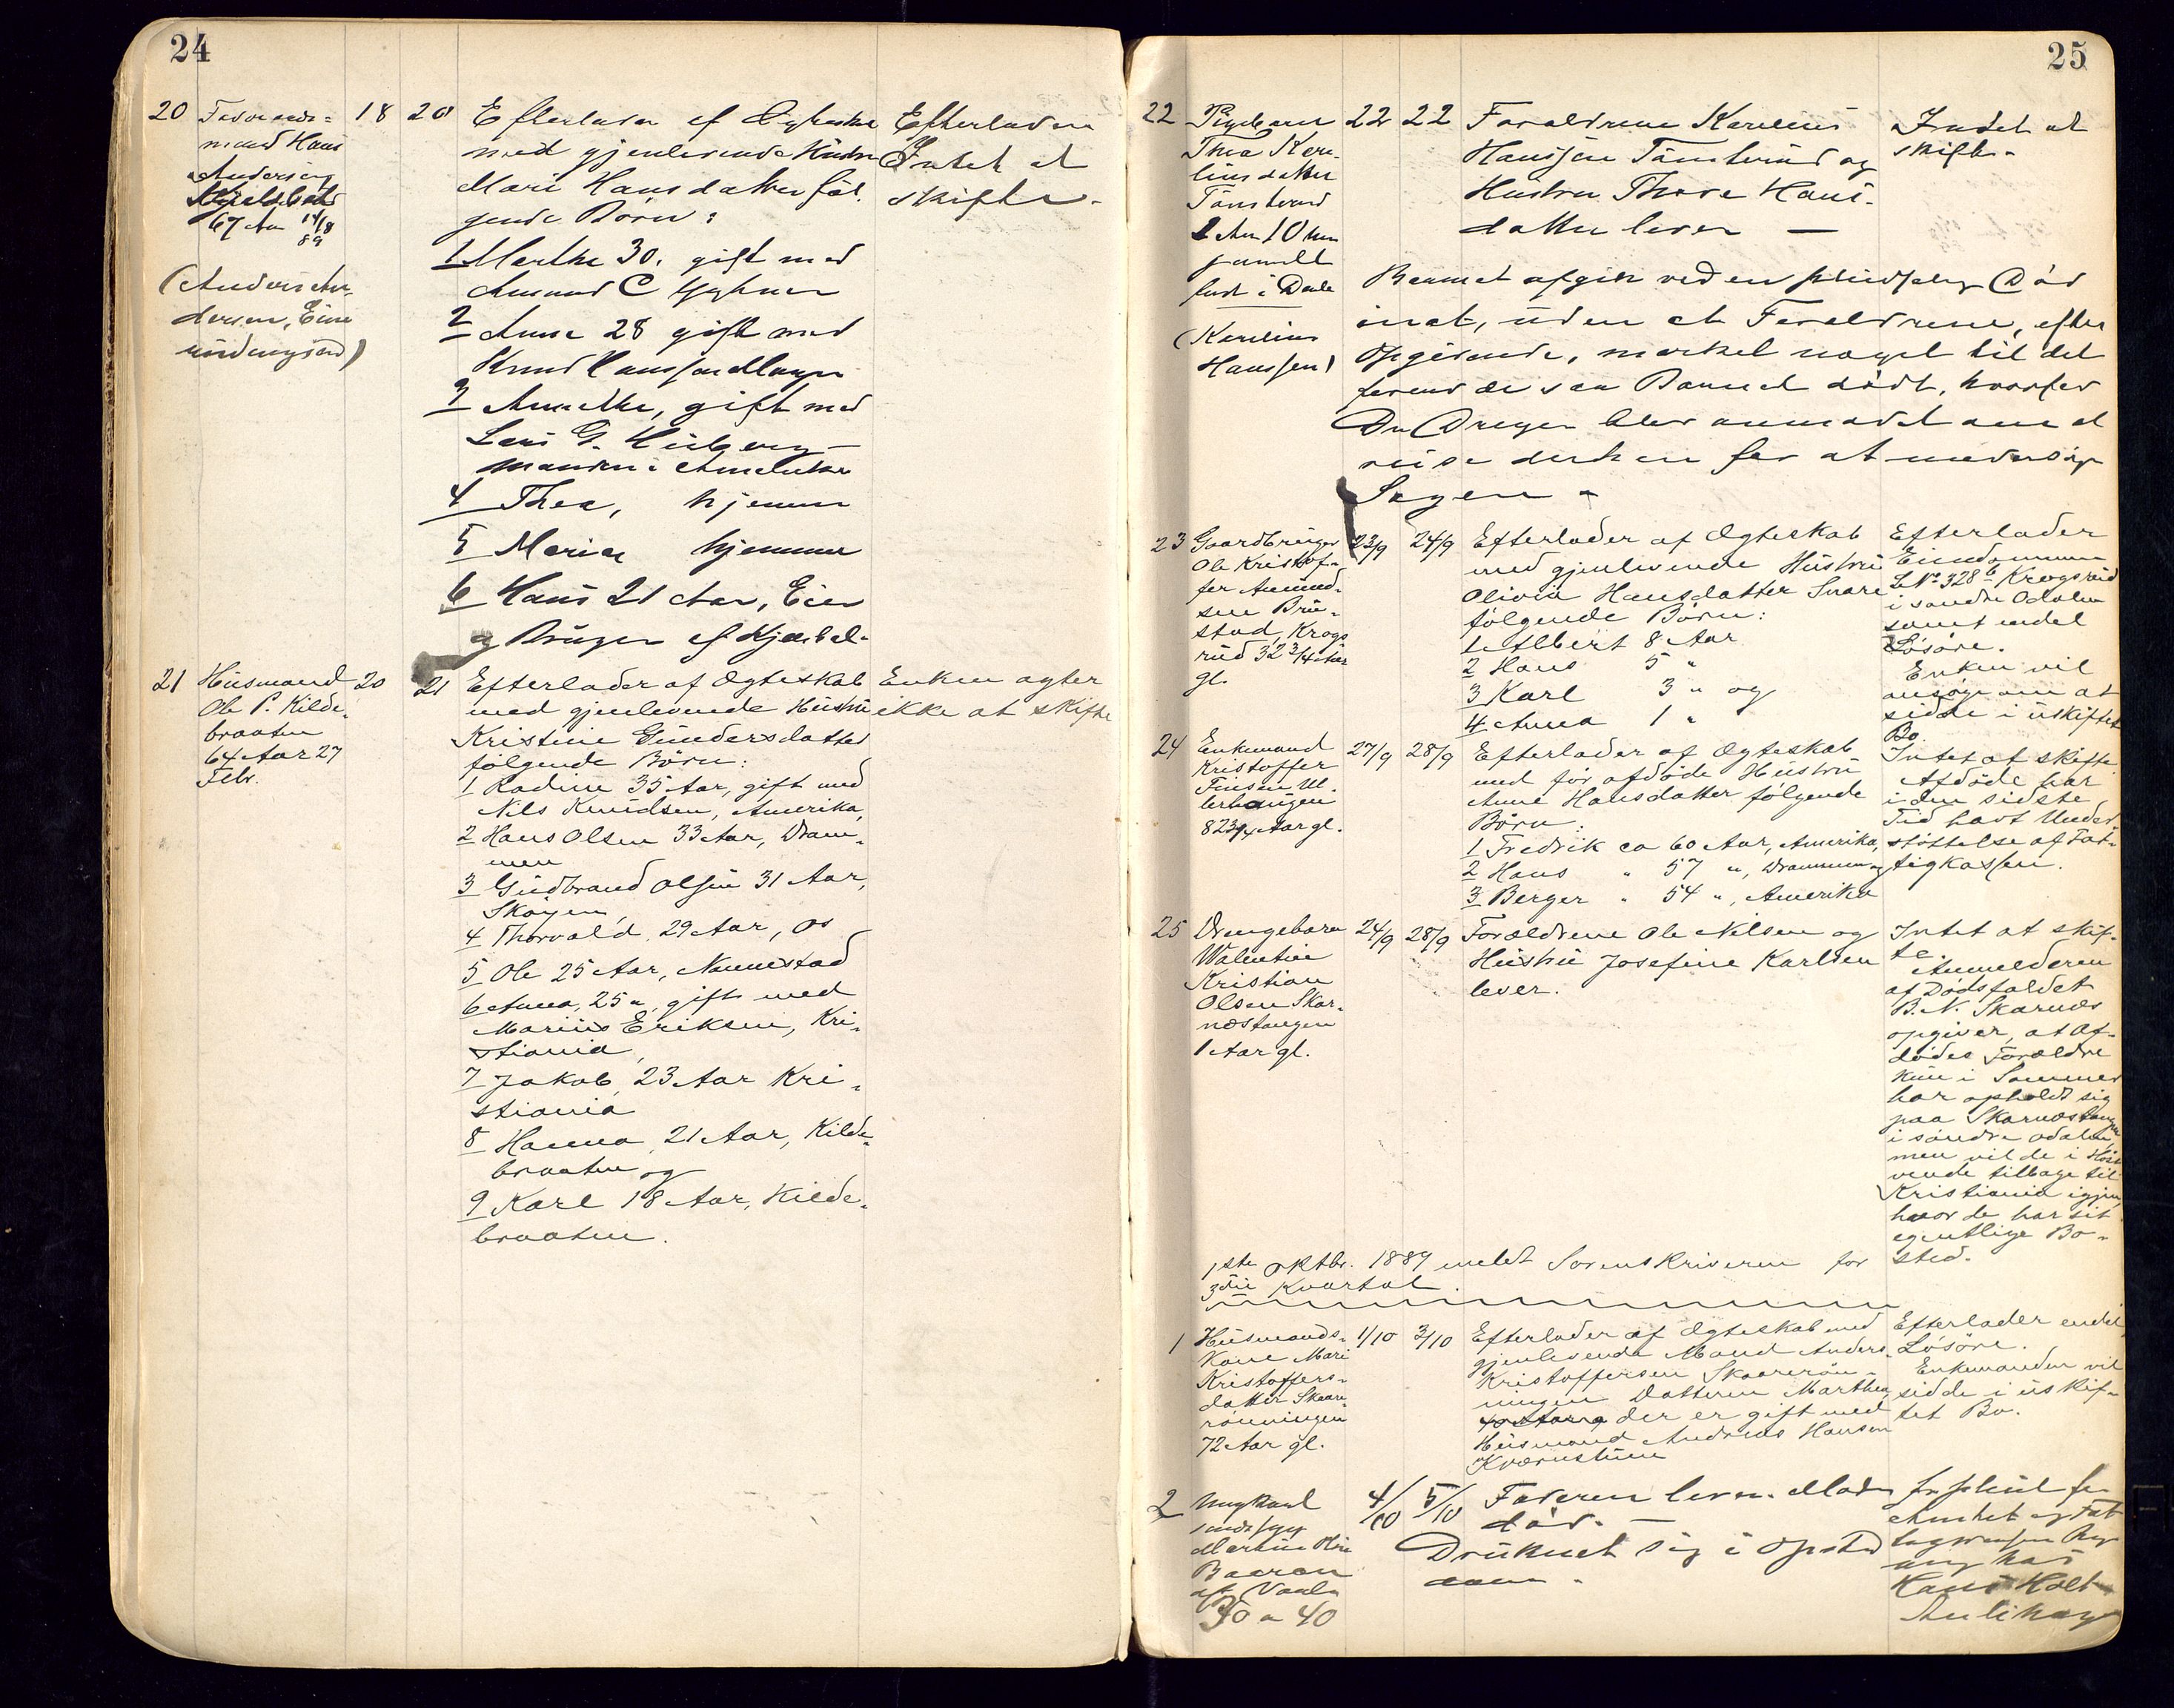 24
20
mand Hans
Andersen
67 Aar 14/8
89
(Anders An-
dersen, Eier
18
20
Efterlader af Ægteskab
med gjenlevende Hustru
Mari Hansdatter føl-
gende Børn:
1 Marthe 30, gift med
Amund C
2 Anne 28 gift med
Knud Hanssen
3 Anethe, gift med
Lars G.
Manden i Amerika
4 Thea, hjemme
5 Maria hjemme
6 Hans 21 Aar, Eier
og Bruger af
Efterlader
Intet at
skifte.
21
Husmand
Ole P. Kilde-
braaten
64 Aar 27
Febr.
20
21
Efterlader af Ægteskab
med gjenlevende Hustru
Kristine Gundersdatter
følgende Børn:
1 Radine 35 Aar, gift med
Nils Knudsen, Amerika,
2 Hans Olsen 33 Aar, Dram-
men
3 Gudbrand Olsen 31 Aar,
Skøyen,
4 Thorvald, 29 Aar, Os
5 Ole 25 Aar, Naunestad
6 Anna, 25 ", gift med
Marius Eriksen, Kri-
stiania,
7 Jakob, 23 Aar Kri-
stiania
8 Hanna, 21 Aar, Kilde-
braaten og
9 Karl 18 Aar, Kilde-
braaten.
Enken agter
ikke at skifte
25
22
Pigebarn
Thea Kere-
liusdatter
Tømterud
10
gammelt
født i Dale
(Kerelius
Hanssen)
22
22
Forældrene Kerelius
Hanssen Tømterud og
Hustru Thore Hans-
datter lever —
Barnet afgik ved en pludselig Død
inat, uden at Forældrene, efter
Opgivende, mærket noget til det
førend de saa Barnet dødt, hvorfor
Dr Dreyer blev anmodet om at
reise derhen for at undersøge
Sagen -
23
Gaardbruger
Ole Kristof-
fer Amund-
sen Bru-
stad, Krogs
rud 32 3/4 Aar
gl.
23/9
24/9
Efterlader af Ægteskab
med gjenlevende Hustru
Olivia Hansdatter Snare
følgende Børn:
1 Albert 8 Aar
2 Hans 5 "
3 Karl 3 " og
4 Anna 1 "
Efterlader
Eiendommen
L No 328 b Krogsrud
i søndre Odalen
samt endel
Løsøre.
Enken vil
ansøge om at
sidde i uskiftet
Bo.
24
Enkemand
Kristoffer
Finsen Ul-
lerhaugen
82 3/4 Aar gl.
27/9
28/9
Efterlader af Ægteskab
med før afdøde Hustru
Anne Hansdatter følgende
Børn:
1 Fredrik ca 60 Aar, Amerika,
2 Hans " 57 ", Drammen og
3 Berger " 54 ", Amerika
Intet at skifte
Afdøde har
i den sidste
Tid havt Under-
støttelse af Fat-
tigkassen.
25
Drengebarn
Walentin
Kristian
Olsen Skar-
næstangen
1 Aar gl.
24/9
28/9
Forældrene Ole Nilsen og
Hustru Josefine Karlsen
lever.
Intet at skif-
te.
Anmelderen
af Dødsfaldet
B. N. Skarnæs
opgiver, at Af-
dødes Forældre
kun i Sommer
har opholdt sig
paa Skarnæstangen
i søndre Odalen,
men vil de i Høst
vende tilbage til
Kristiania igjen,
hvor de har sit
egentlige Bo-
sted.
1ste Oktbr. 1889 meldt Sorenskriveren for
3die Kvartal.
1
Husmands-
Kone Mari
Kristoffers-
datter Skaare-
rønningen
72 Aar gl.
1/10
3/10
Efterlader af Ægteskab med
gjenlevende Mand Anders
Kristoffersen Skaarerøn-
ningen Datteren Marthea,
40 Aar, der er gift med
Husmand Andreas Hansen
Kværnstuen
Efterlader endel
Løsøre.
Enkemanden vil
sidde i uskif-
tet Bo.
2
Ungkarl
Baaron
30 a 40
4/10
5/10
Faderen lever. Moder
død. —
Druknet sig i Opstad
aaen.
hos
Hans Holt